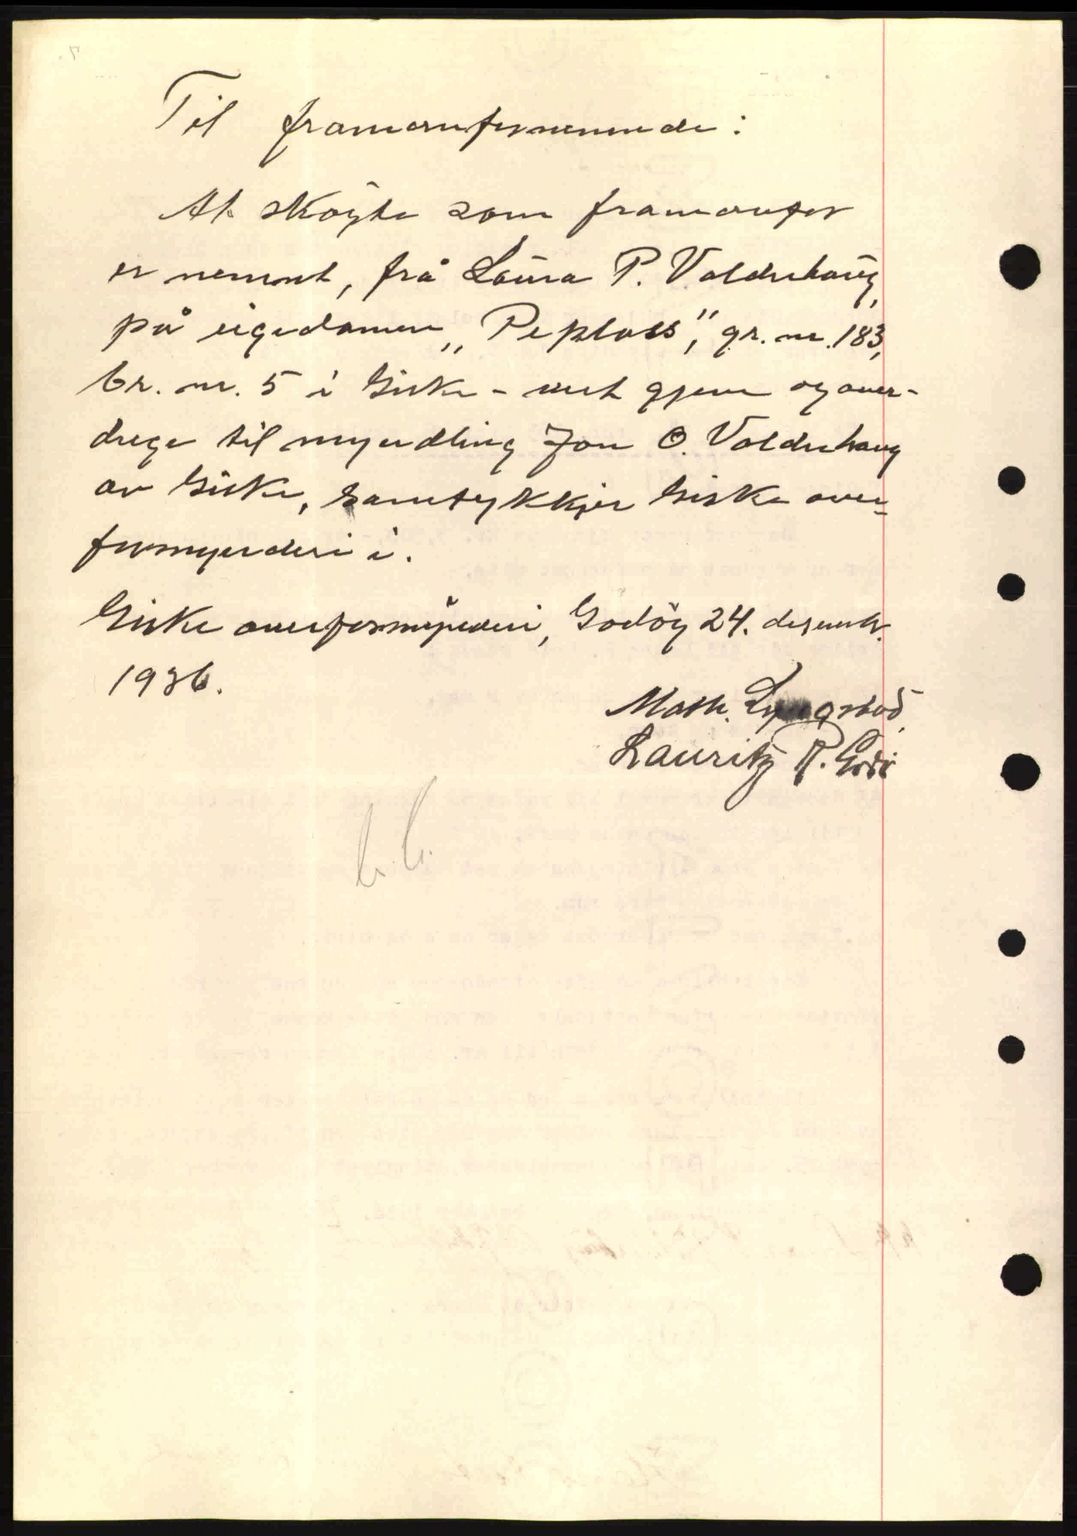 Til framanfornemnde:
At skøyte som framanfor
er nemnt, frå Laura P. Valderhaug,
på eigedomen „Peplass", gr. nr. 183,
br. nr. 5 i Giske - vert gjeve og over-
drege til myndling Jon O. Valderhaug
av Giske, samtykkjer Giske over-
formynderi i.
Giske overformynderi, Godøy 24. desemb.
1936.
Math. Lyngstad,
Lauritz P. Godø